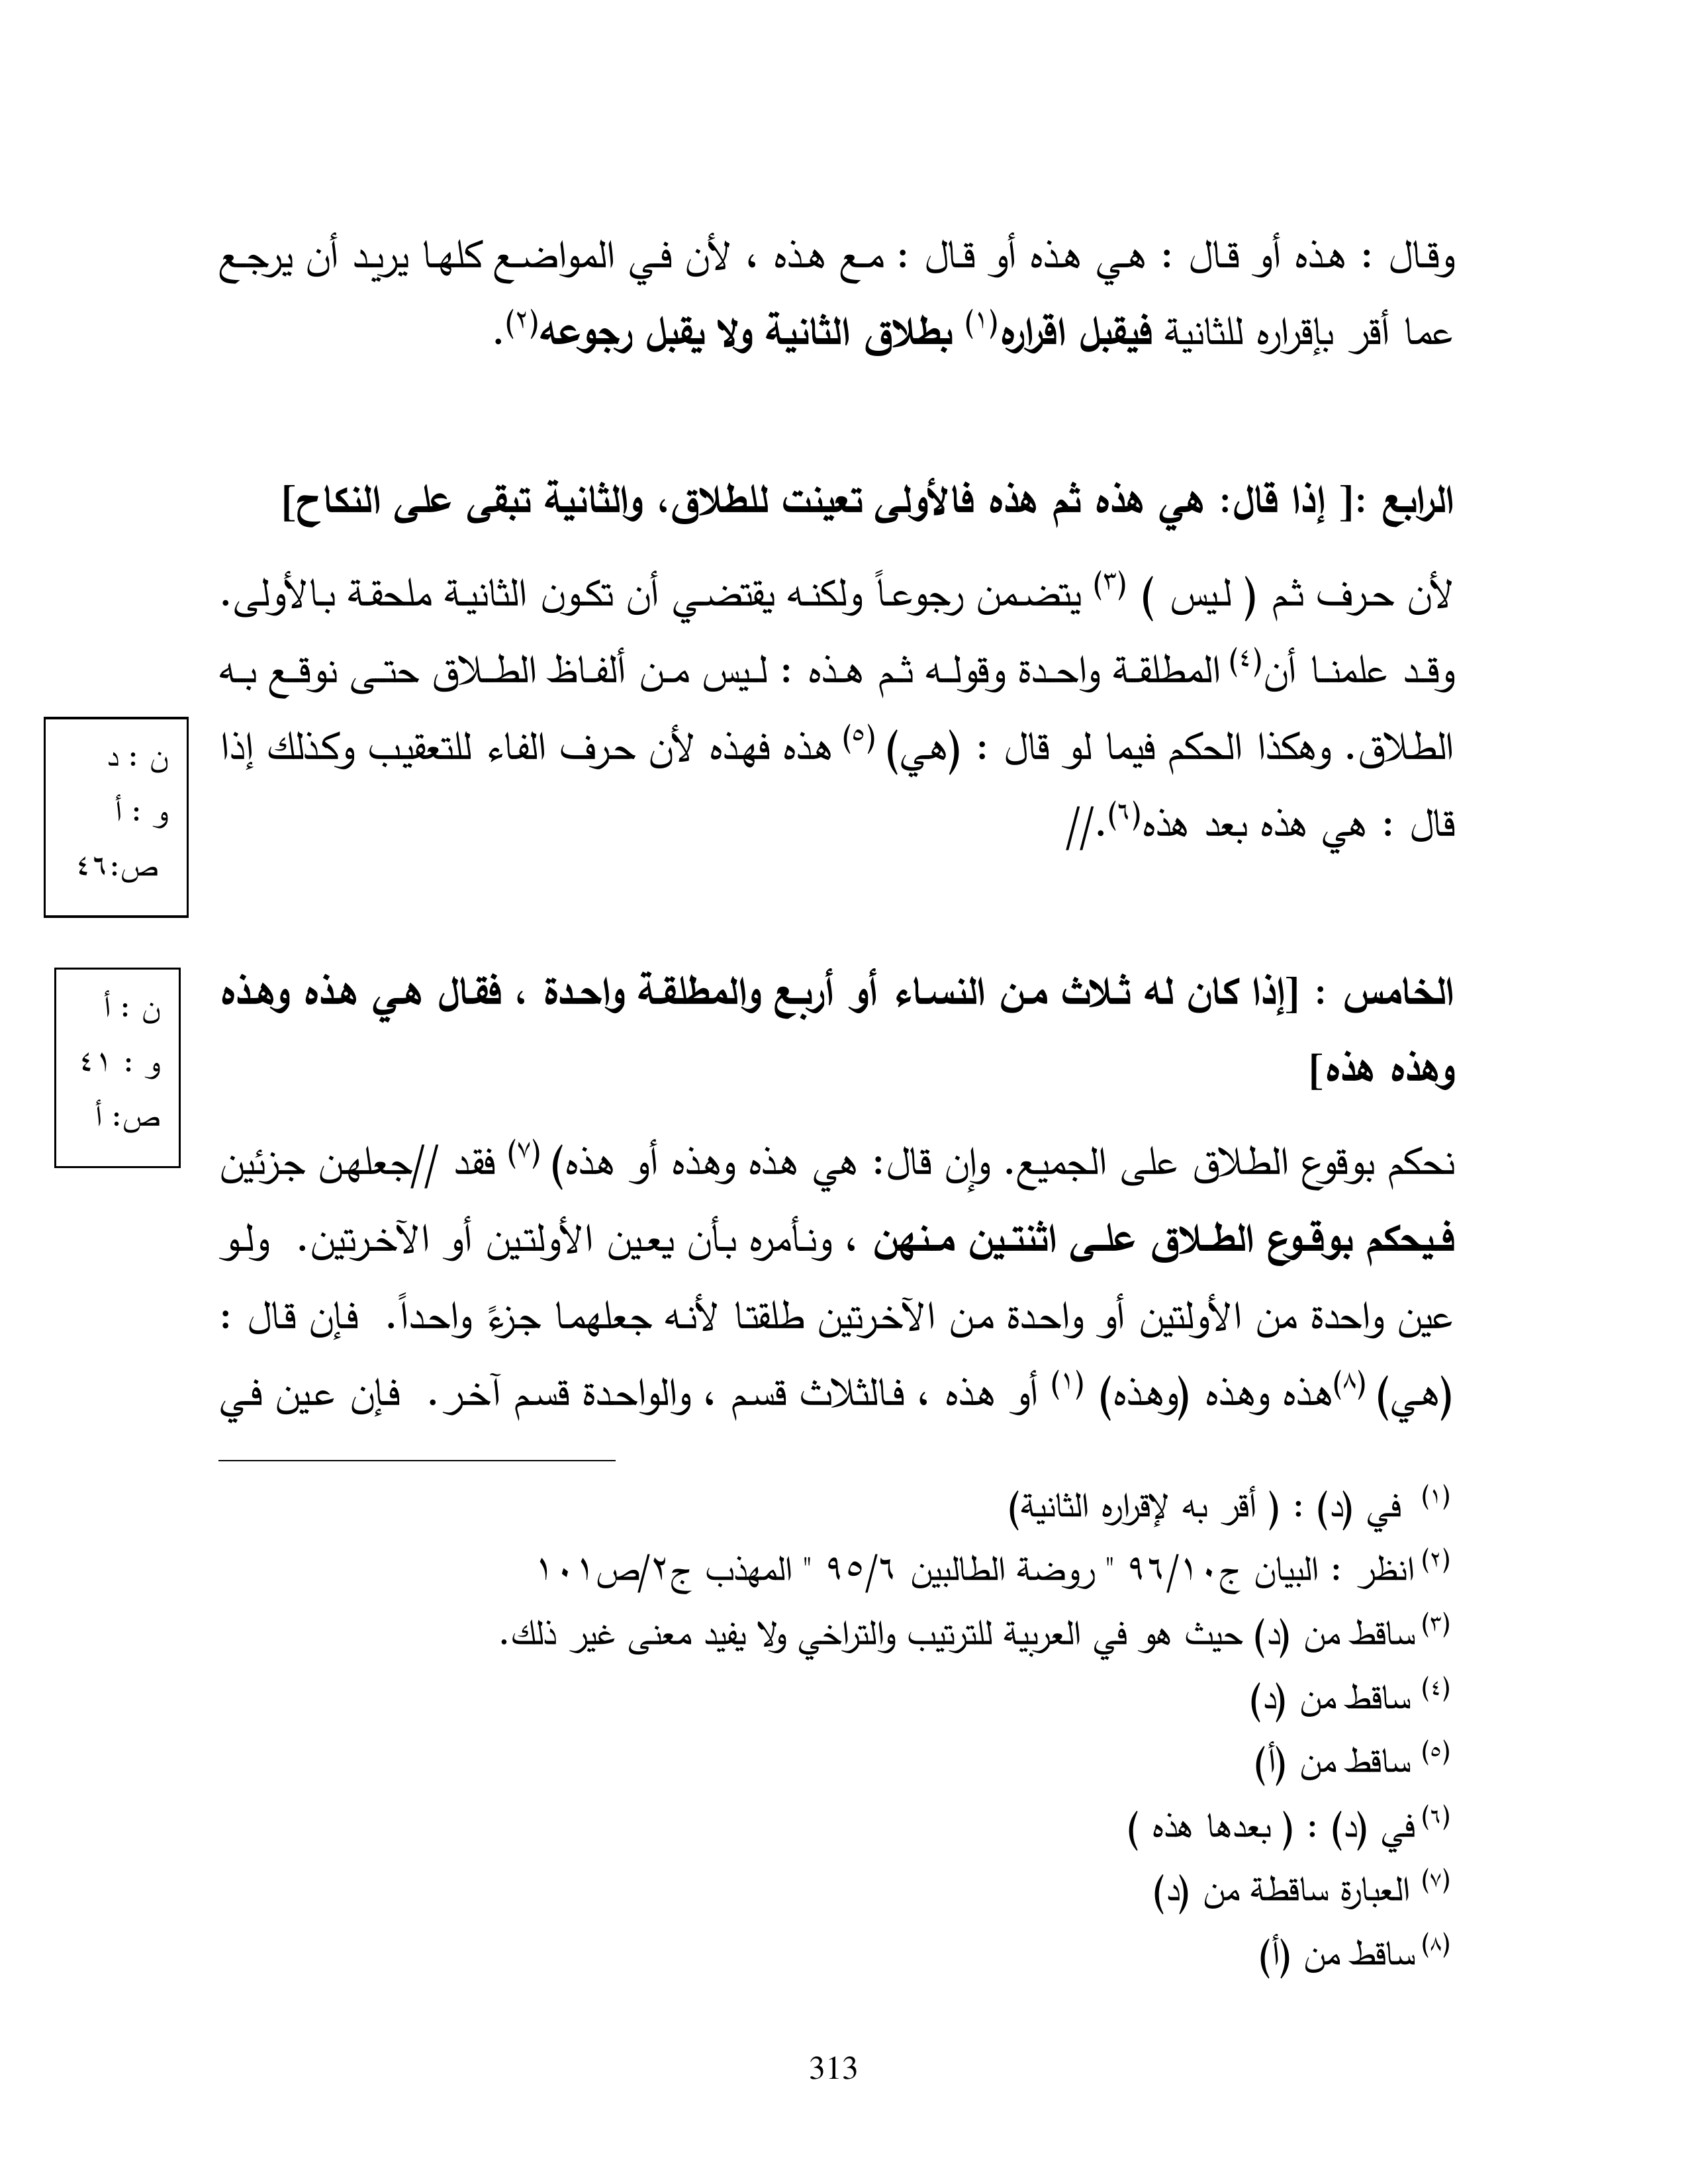 وقال : هذه أو قال : هي هذه أو قال : مع هذه ، لأن في المواضع كلها يريد أن يرجع
عما أقر بإقراره للثانية فيقبل اقراره(١) بطلاق الثانية ولا يقبل رجوعه(٢).
الرابع :[ إذا قال: هي هذه ثم هذه فالأولى تعينت للطلاق، والثانية تبقى على النكاح]
لأن حرف ثم ( ليس ) (٣) يتضمن رجوعاً ولكنه يقتضي أن تكون الثانية ملحقة بالأولى.
وقد علمنا أن(٤) المطلقة واحدة وقوله ثم هذه : ليس من ألفاظ الطلاق حتى نوقع به
الطلاق. وهكذا الحكم فيما لو قال : (هي) (٥) هذه فهذه لأن حرف الفاء للتعقيب وكذلك إذا
قال : هي هذه بعد هذه(٦).//
ن : د
و : أ
ص:٤٦
الخامس : [إذا كان له ثلاث من النساء أو أربع والمطلقة واحدة ، فقال هي هذه وهذه
وهذه هذه]
ن : أ
و : ٤١
ص: أ
نحكم بوقوع الطلاق على الجميع. وإن قال: هي هذه وهذه أو هذه) (٧) فقد //جعلهن جزئين
فيحكم بوقوع الطلاق على اثنتين منهن ، ونأمره بأن يعين الأولتين أو الآخرتين. ولو
عين واحدة من الأولتين أو واحدة من الآخرتين طلقتا لأنه جعلهما جزءً واحداً. فإن قال :
(هي) (٨)هذه وهذه (وهذه) (١) أو هذه ، فالثلاث قسم ، والواحدة قسم آخر. فإن عين في
(١) في (د) : ( أقر به لإقراره الثانية)
(٢) انظر : البيان ج٩٦/١٠ " روضة الطالبين ٩٥/٦ " المهذب ج٢/ص١٠١
(٣) ساقط من (د) حيث هو في العربية للترتيب والتراخي ولا يفيد معنى غير ذلك.
(٤) ساقط من (د)
(٥) ساقط من (أ)
(٦) في (د) : ( بعدها هذه )
(٧) العبارة ساقطة من (د)
(٨) ساقط من (أ)
313